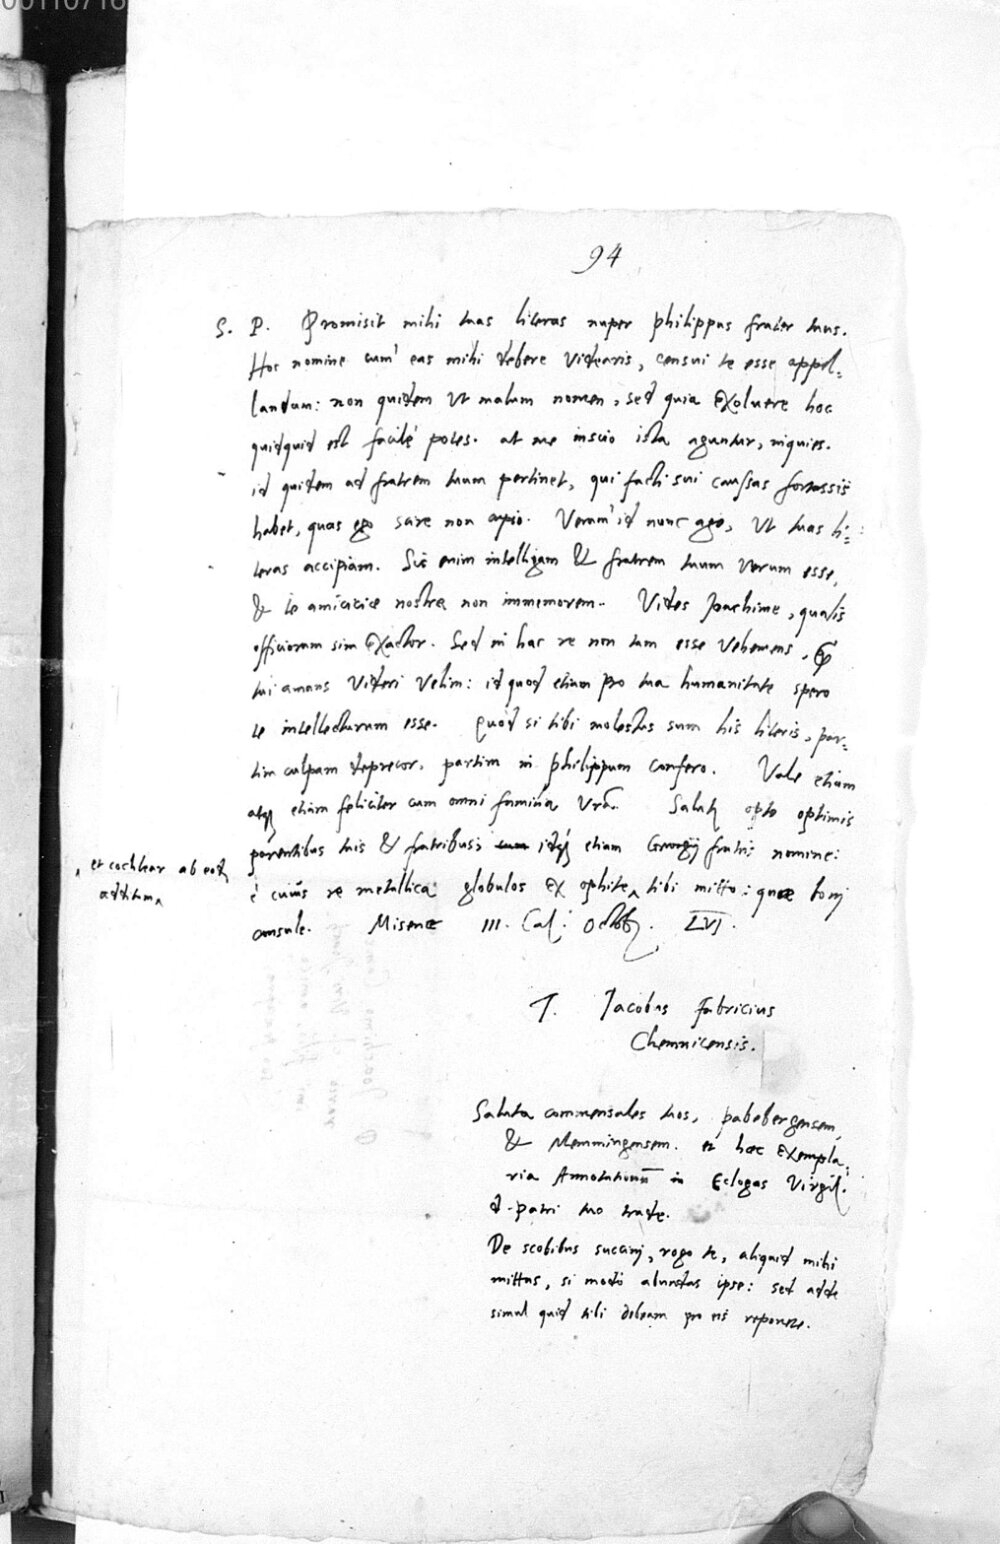 00110716
94
S. P. Promisit mihi tuas literas nuper philippus frater tuus.
Hoc nomine cum eas mihi debere videaris, censui te esse appel=
landum: non quidem ut malum nomen, sed quia exoluere hoc
quidquid est facilè potes. at me inscio ista aguntur, inquies.
id quidem ad fratrem tuum pertinet, qui facti sui caussas fortassis
habet, quas ego scire non cupio. Verum id nunc ago, ut tuas li=
teras accipiam. Sic enim intelligam & fratrem tuum verum esse,
& te amicitiæ nostræ non immemorem. Vides Joachime, qualis
officiorum sim exactor. Sed in hac re non tam esse vehemens,
tui amans videri velim: id quod etiam pro tua humanitate spero
te intellecturum esse. Quod si tibi molestus sum his literis, par=
tim culpam deprecor, partim in philippum confero. Vale etiam
atq etiam feliciter cum omni familia vra. Salutē opto optimis
parentibus tuis & fratribus: idq etiam Georgij fratris nomine:
et cochlear ab eodē
additum
è cuius re metallica globulos ex ophite tibi mitto: quæ boni
consule. Misenæ III. Cal: Octob. LVI.
T. Jacobus Fabricius
Chemnicensis.
Saluta commensales tuos, pabebergensem,
& Memmingensem. et hæc exempla=
ria Annotationū in Eclogas Virgil.
d. patri tuo trade.
De scobibus succini, rogo te, aliquid mihi
mittas, si modò abundas ipse: sed adde
simul quid tibi debeam pro eis reponere.